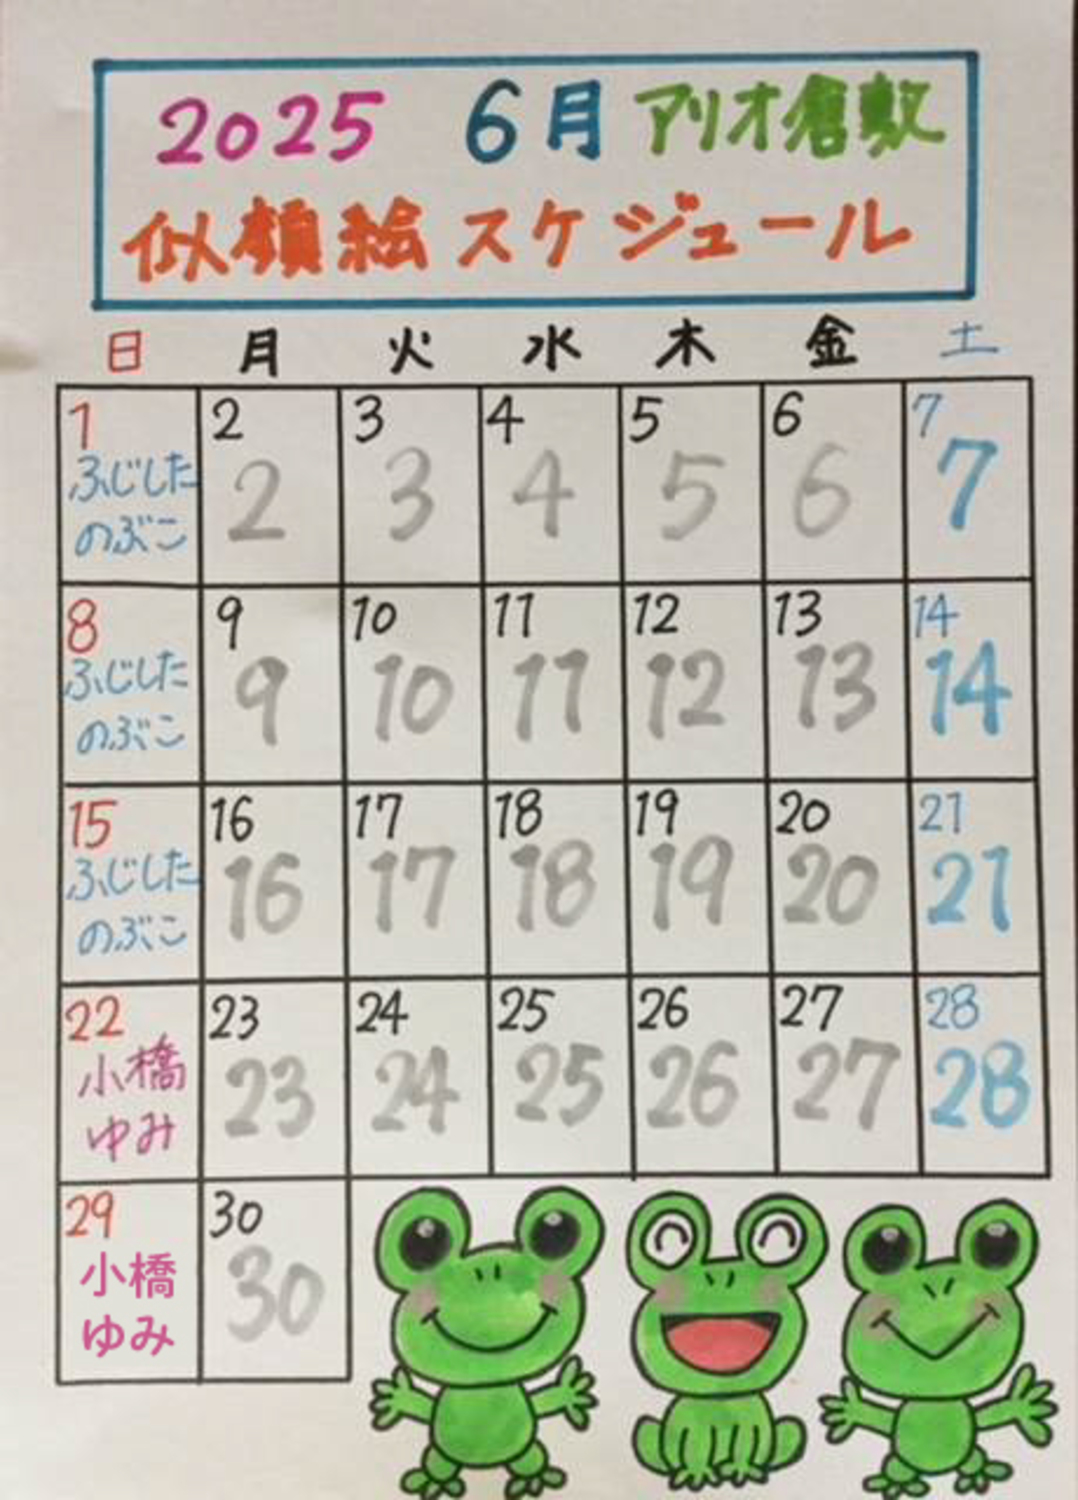 2025 6月 アリオ倉敷
似顔絵 スケジュール
日 月 火 水 木 金 土
1 2 3 4 5 6 7
ふじした 2 3 4 5 6 7
のぶこ
8 9 10 11 12 13 14
ふじした 9 10 11 12 13 14
のぶこ
15 16 17 18 19 20 21
ふじした 16 17 18 19 20 21
のぶこ
22 23 24 25 26 27 28
小橋 23 24 25 26 27 28
ゆみ
29 30
小橋 30
ゆみ